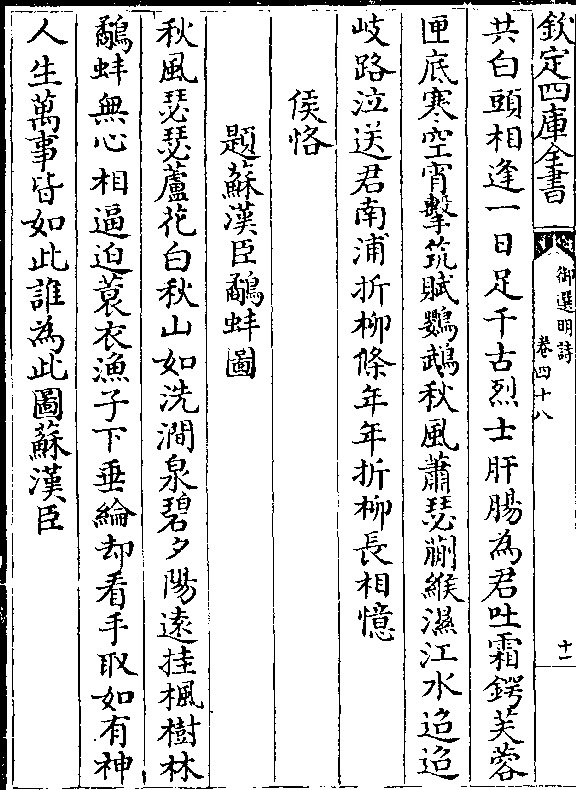 欽定四庫全書
御選明詩
卷四十八
十一
共白頭相逢一日足千古烈士肝腸為君吐霜鍔芙蓉
匣底寒空宵擊筑賦鸚鵡秋風蕭瑟蒯緱濕江水迢迢
岐路泣送君南浦折柳條年年折柳長相憶
侯恪
題蘇漢臣鷸蚌圖
秋風瑟瑟蘆花白秋山如洗澗泉碧夕陽遠挂楓樹林
鷸蚌無心相逼迫蓑衣漁子下垂綸却看手取如有神
人生萬事皆如此誰為此圖蘇漢臣